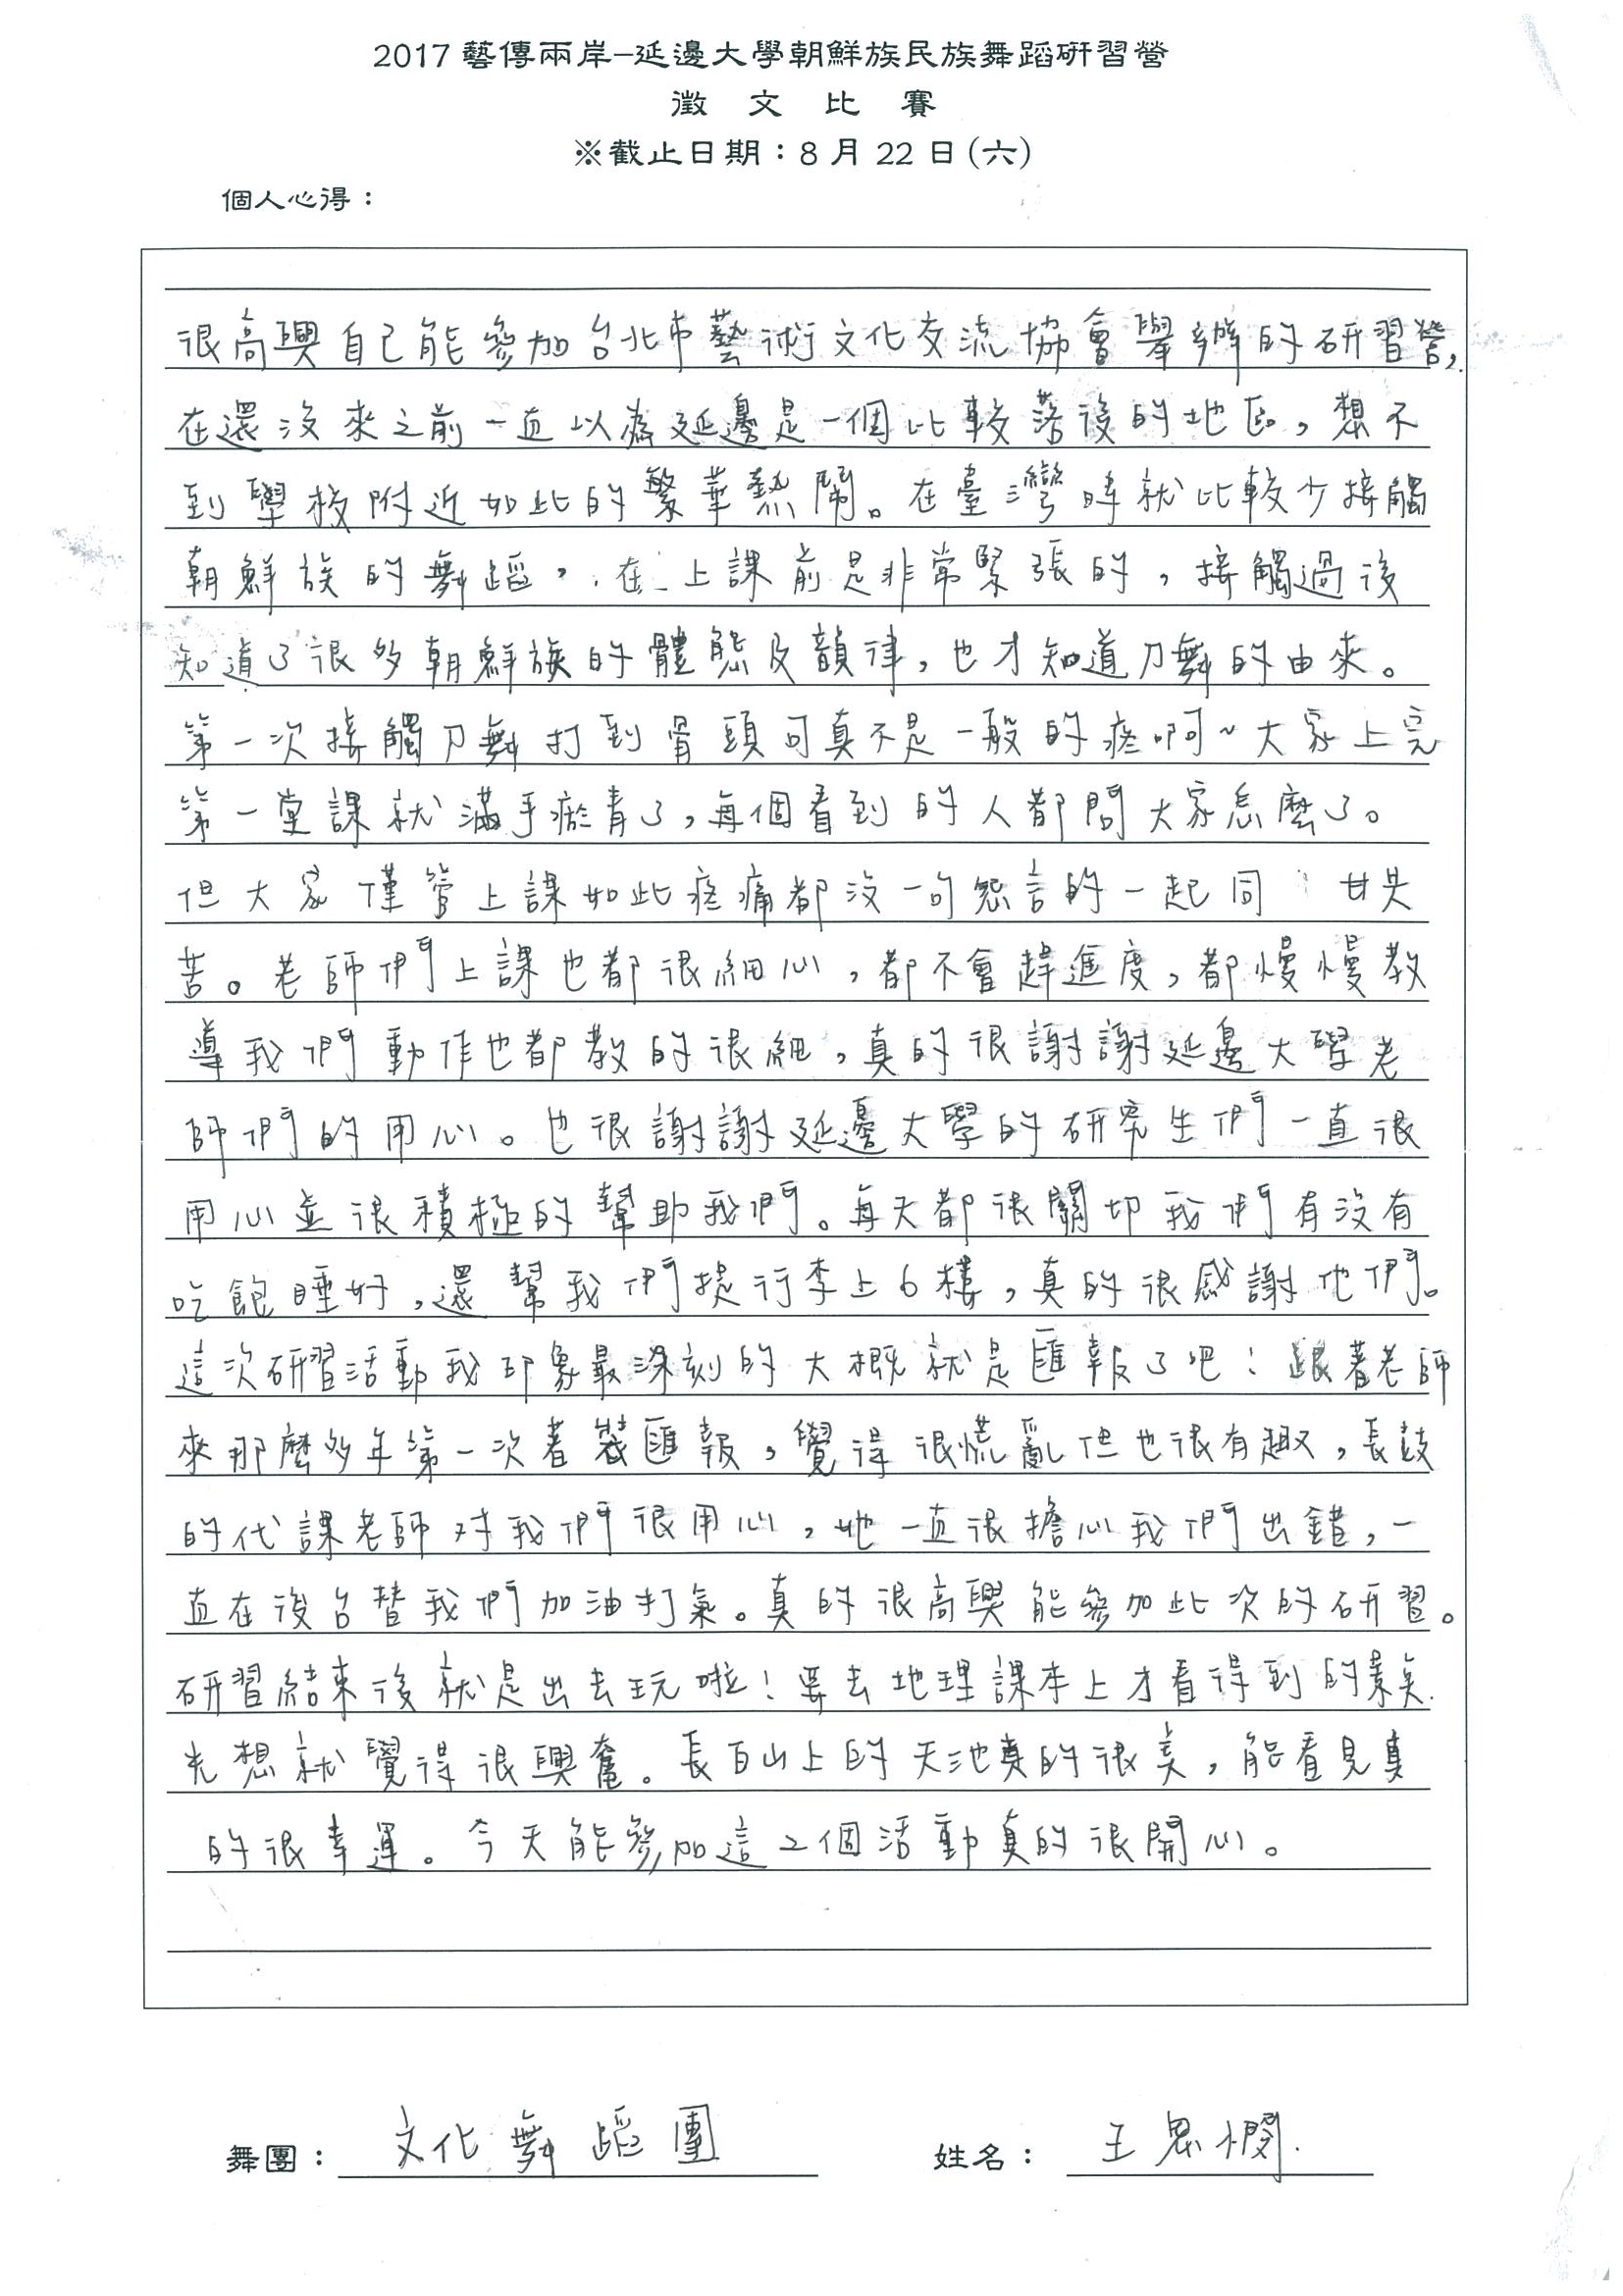 2017 藝傳兩岸–延邊大學朝鮮族民族舞蹈研習營
徵 文 比 賽
※截止日期：8 月 22 日(六)
個人心得：
很高興自己能參加台北市藝術文化交流協會舉辦的研習營，
在還沒來之前一直以為延邊是一個比較落後的地區，想不
到學校附近如此的繁華熱鬧。在臺灣時就比較少接觸
朝鮮族的舞蹈，在上課前是非常緊張的，接觸過後
知道了很多朝鮮族的體態及韻律，也才知道刀舞的由來。
第一次接觸刀舞打到骨頭可真不是一般的疼啊~大家上完
第一堂課就滿手瘀青了，每個看到的人都問大家怎麼了。
但大家僅管上課如此疼痛都沒一句怨言的一起同甘共
苦。老師們上課也都很細心，都不會趕進度，都慢慢教
導我們動作也都教的很細，真的很謝謝延邊大學老
師們的用心。也很謝謝延邊大學的研究生們一直很
用心並很積極的幫助我們。每天都很關切我們有沒有
吃飽睡好，還幫我們提行李上6樓，真的很感謝他們。
這次研習活動我印象最深刻的大概就是匯報了吧！跟著老師
來那麼多年第一次著裝匯報，覺得很慌亂但也很有趣，長鼓
的代課老師對我們很用心，她一直很擔心我們出錯，一
直在後台替我們加油打氣。真的很高興能參加此次的研習。
研習結束後就是出去玩啦！要去地理課本上才看得到的景矣
光想就覺得很興奮。長白山上的天池真的很美，能看見真
的很幸運。今天能參加這2個活動真的很開心。
舞團： 文化舞蹈團 姓名： 王思憫